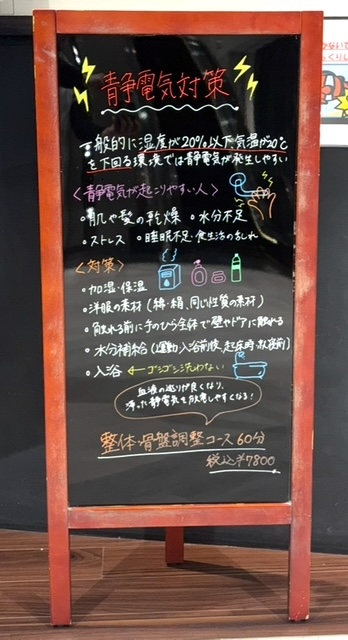 静電気対策
一般的に湿度が20%以下気温が20℃
を下回る環境では静電気が発生しやすい
〈静電気が起こりやすい人〉
・肌や髪の乾燥 ・水分不足
・ストレス ・睡眠不足・食生活の乱れ
〈対策〉
・加湿・保湿
・洋服の素材(綿・絹、同じ性質の素材)
・触れる前に手のひら全体で壁やドアに触れる
・水分補給(運動、入浴前後、起床時、就寝前)
・入浴 ←ゴシゴシ洗わない
血液の巡りが良くなり、
滞った静電気を放電しやすくなる!
整体・骨盤調整コース 60分
税込¥7800